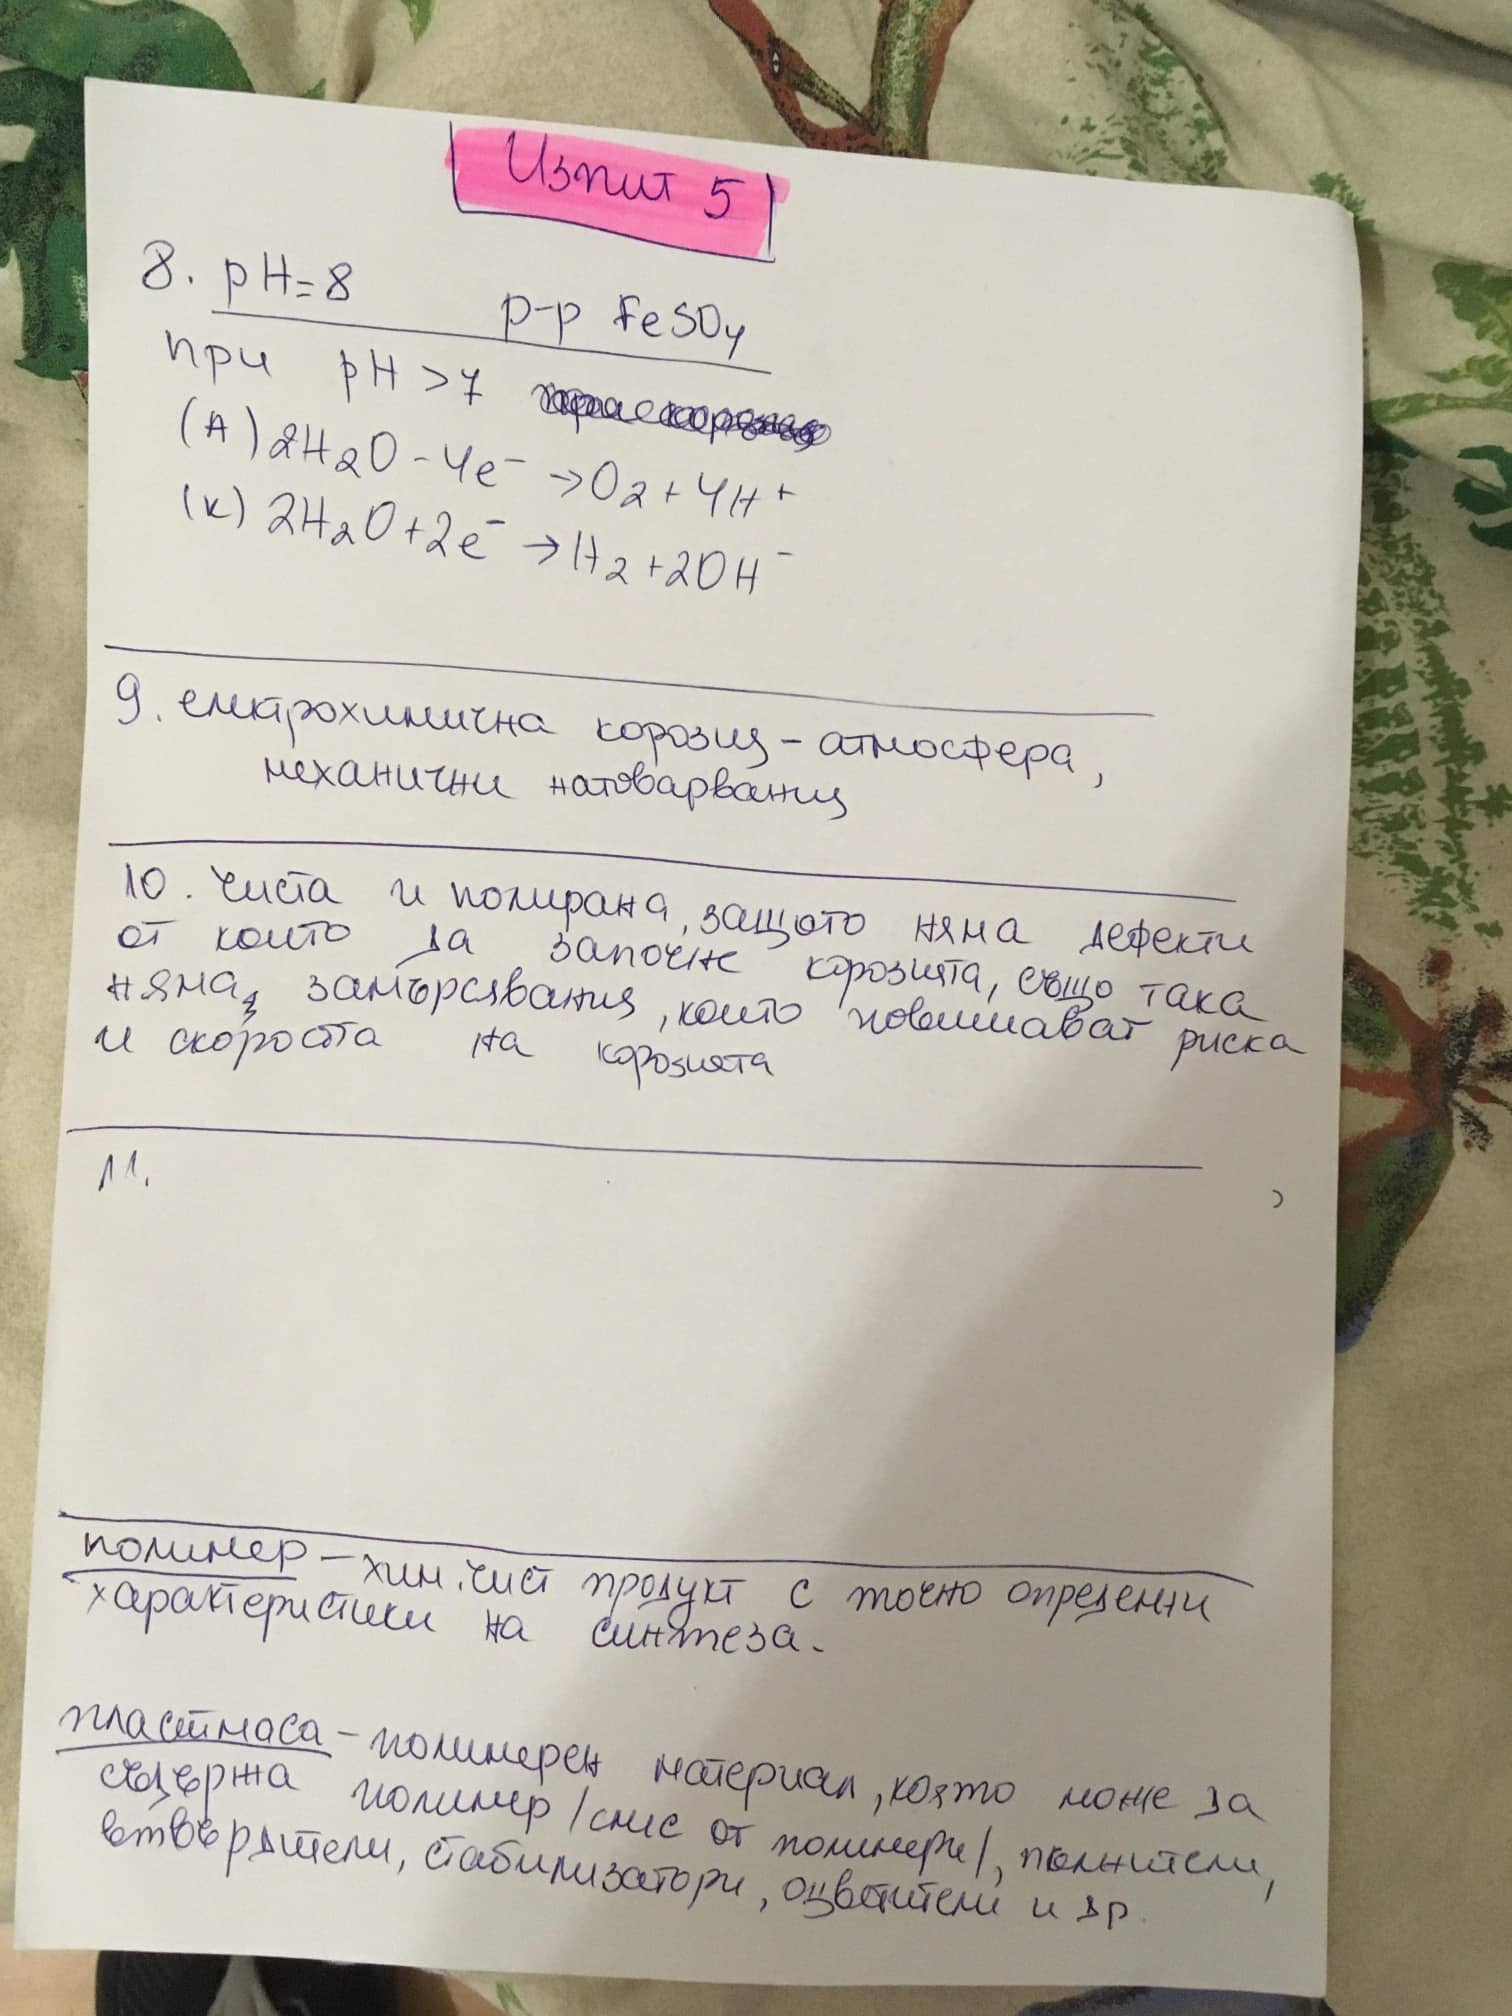 Изпит 5
8. pH=8 р-р FeSO4
при pH>7
(А) 2H2O-4e⁻ →O2+4H⁺
(К) 2H2O+2e⁻ →H2+2OH⁻
9. електрохимична корозия - атмосфера,
механични натоварвания
10. Чиста и полирана, защото няма дефекти
от които да започне корозията, също така
няма замърсявания, които повишават риска
и скоростта на корозията
11.
полимер - хим. чист продукт с точно определени
характеристики на синтеза.
пластмаса - полимерен материал, която може да
съдържа полимер /смес от полимери/, пълнители,
втвърдители, стабилизатори, оцветители и др.